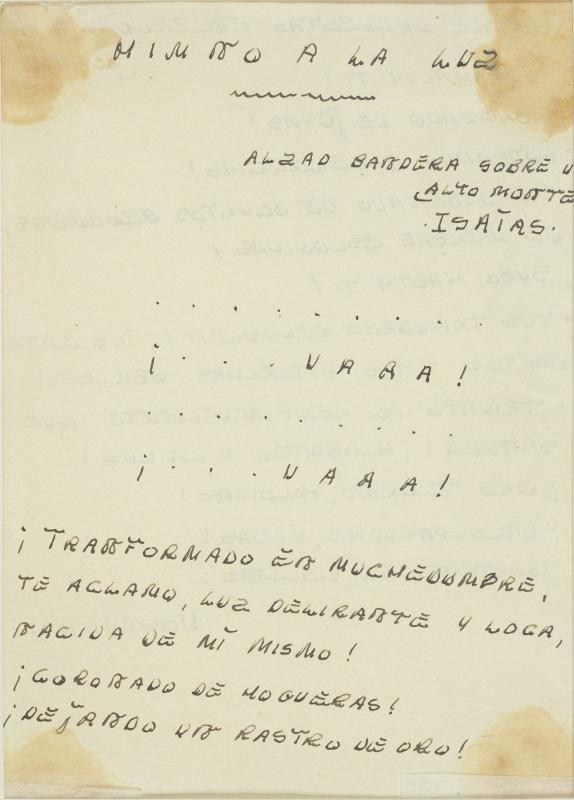 HIMNO A LA LUZ
ALZAD BANDERA SOBRE U
ALTO MONTE
. ISAÍAS.
. . . . . . . . .
¡ . . . . URRA!
. . . . . . .
¡ . . . . URRA!
¡TRANFORMADO EN MUCHEDUMBRE,
TE ACLAMO, LUZ DELIRANTE Y LOCA,
NACIDA DE MÍ MISMO!
¡CORONADO DE HOGUERAS!
¡DEJANDO UN RASTRO DE ORO!